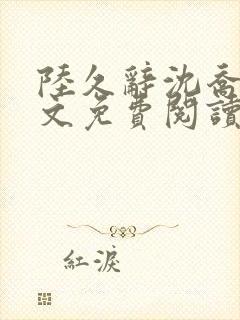 陸久辭沈喬
文免費閱讀
紅淚